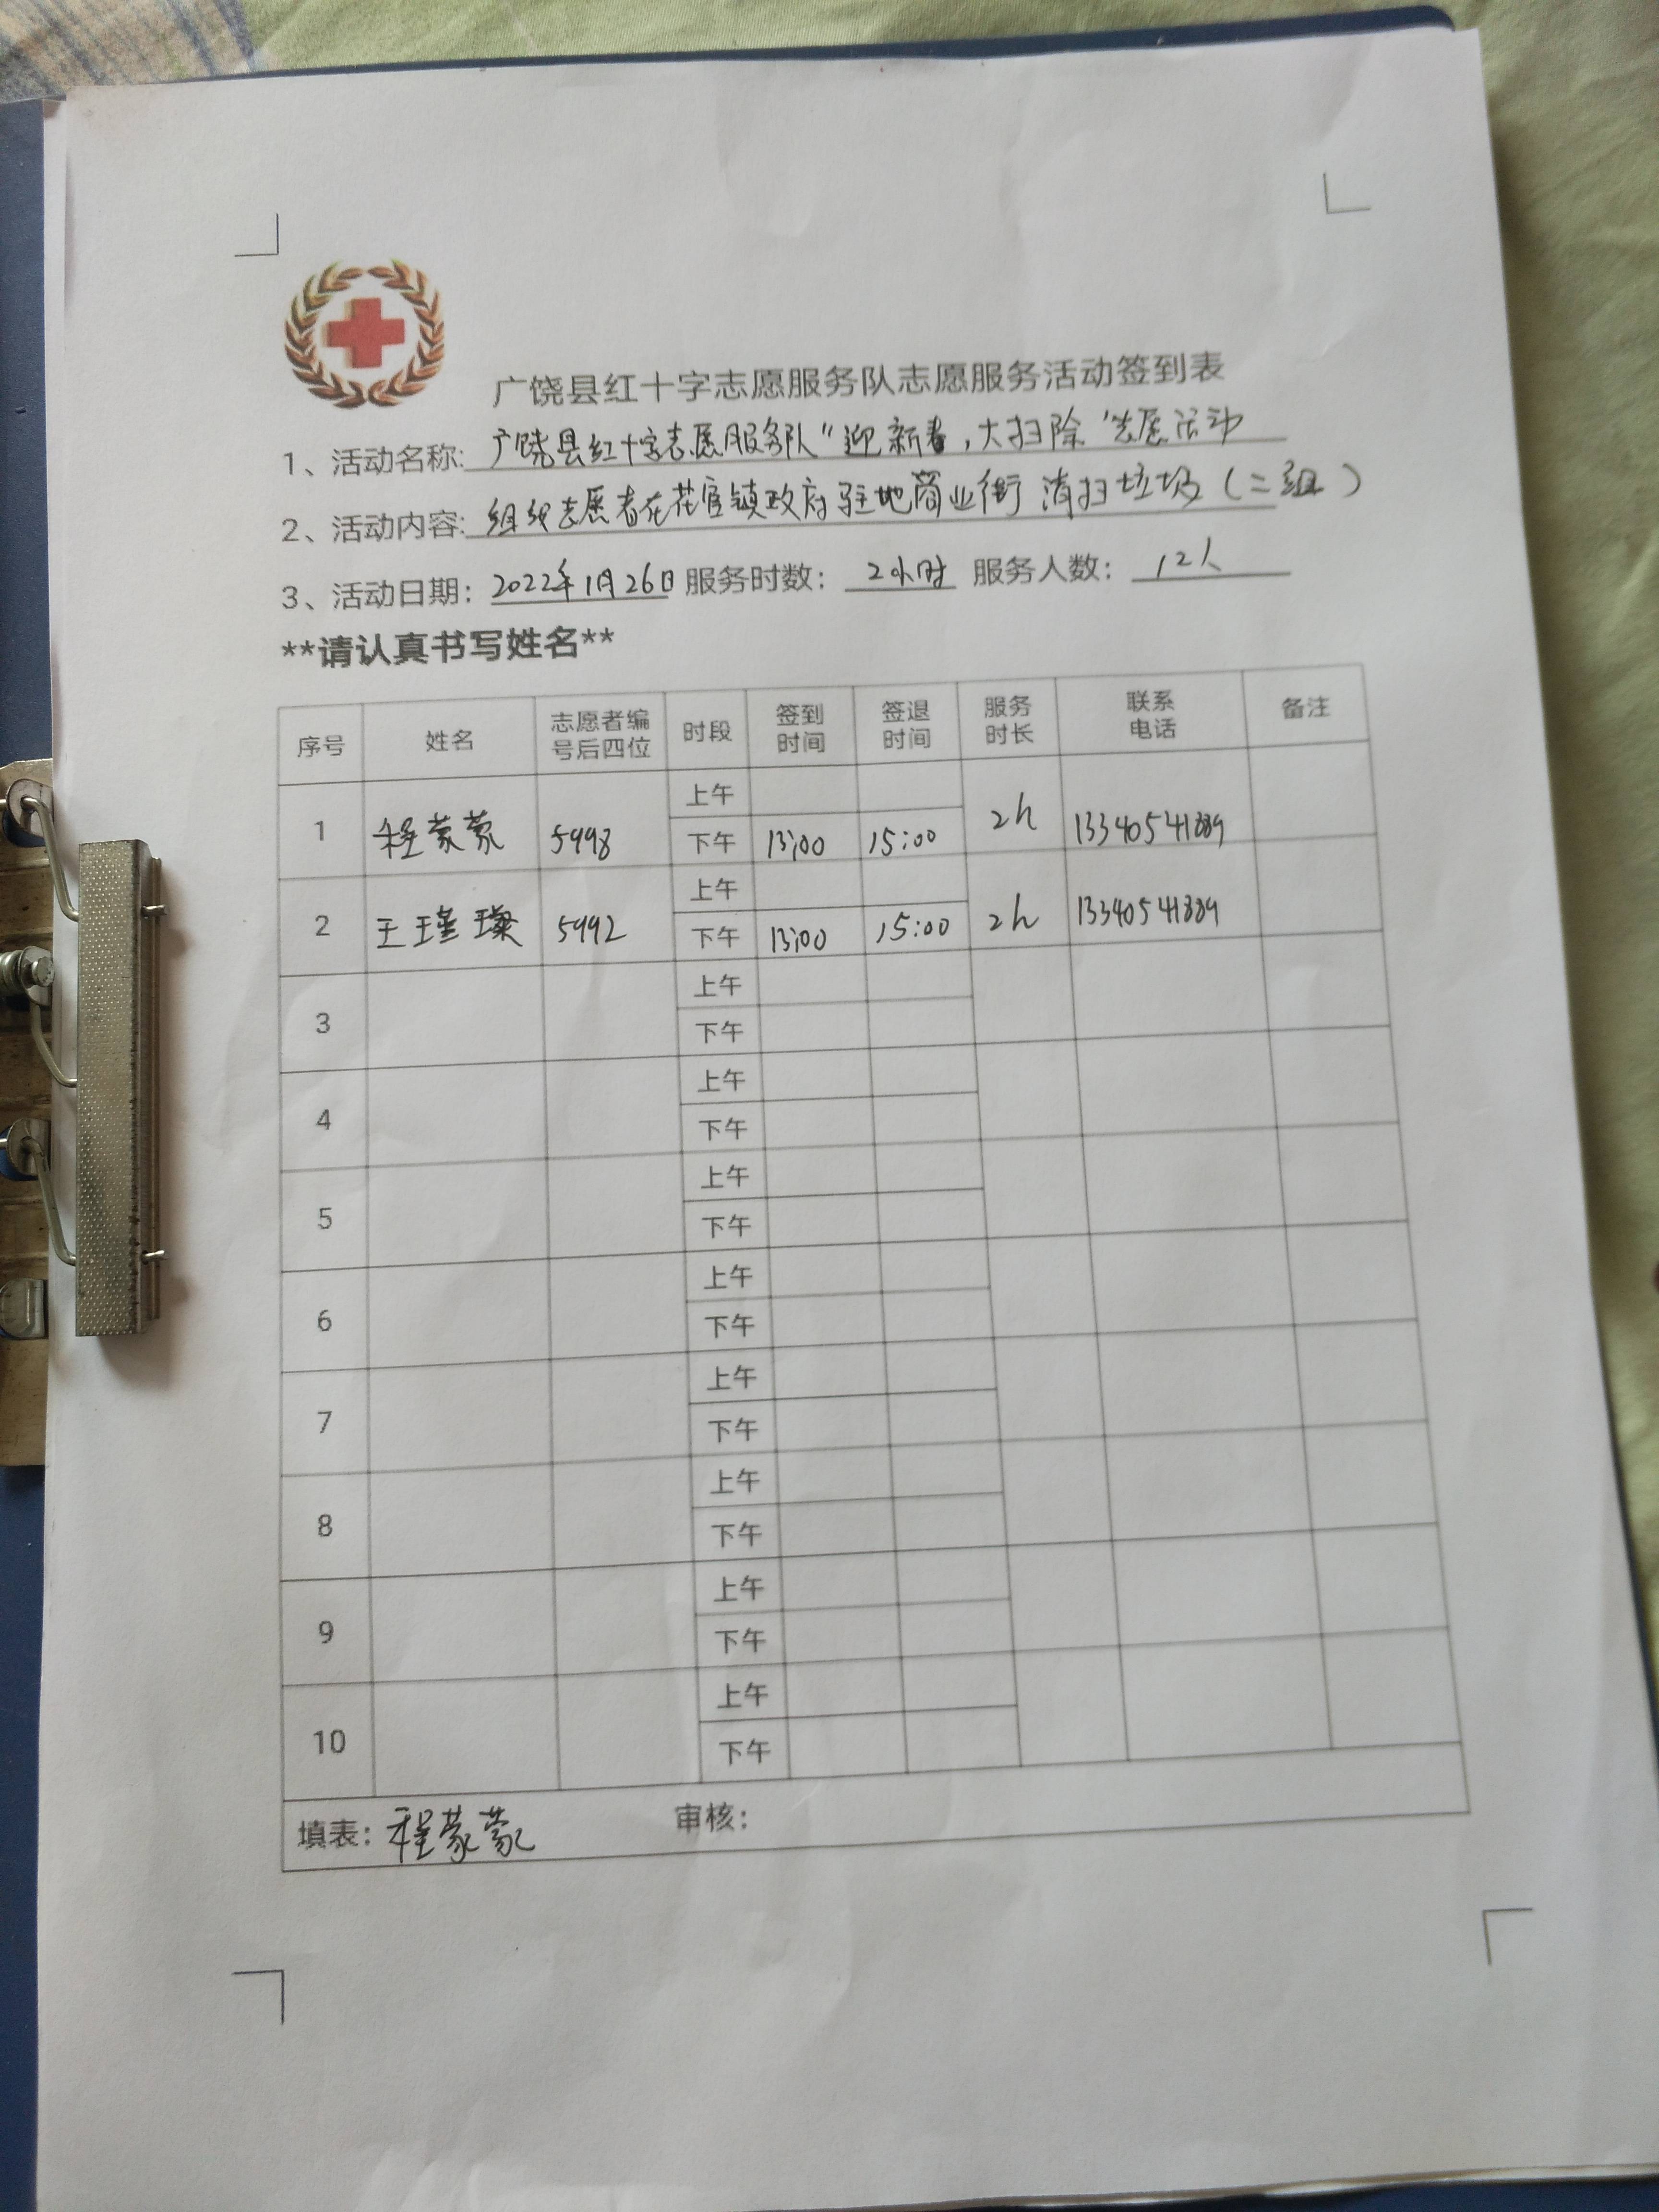 广饶县红十字志愿服务队志愿服务活动签到表
1、活动名称: 广饶县红十字志愿服务队"迎新春,大扫除"志愿活动
2、活动内容: 组织志愿者在花官镇政府驻地商业街清扫垃圾(二组)
3、活动日期: 2022年1月26日 服务时数: 2小时 服务人数: 12人
**请认真书写姓名**
序号 姓名 志愿者编号后四位 时段 签到时间 签退时间 服务时长 联系电话 备注
1 程蒙蒙 5998 上午 2h 13340541889
下午 13:00 15:00
2 王瑾璨 5992 上午 2h 13340541889
下午 13:00 15:00
3 上午
下午
4 上午
下午
5 上午
下午
6 上午
下午
7 上午
下午
8 上午
下午
9 上午
下午
10 上午
下午
填表: 程蒙蒙 审核: